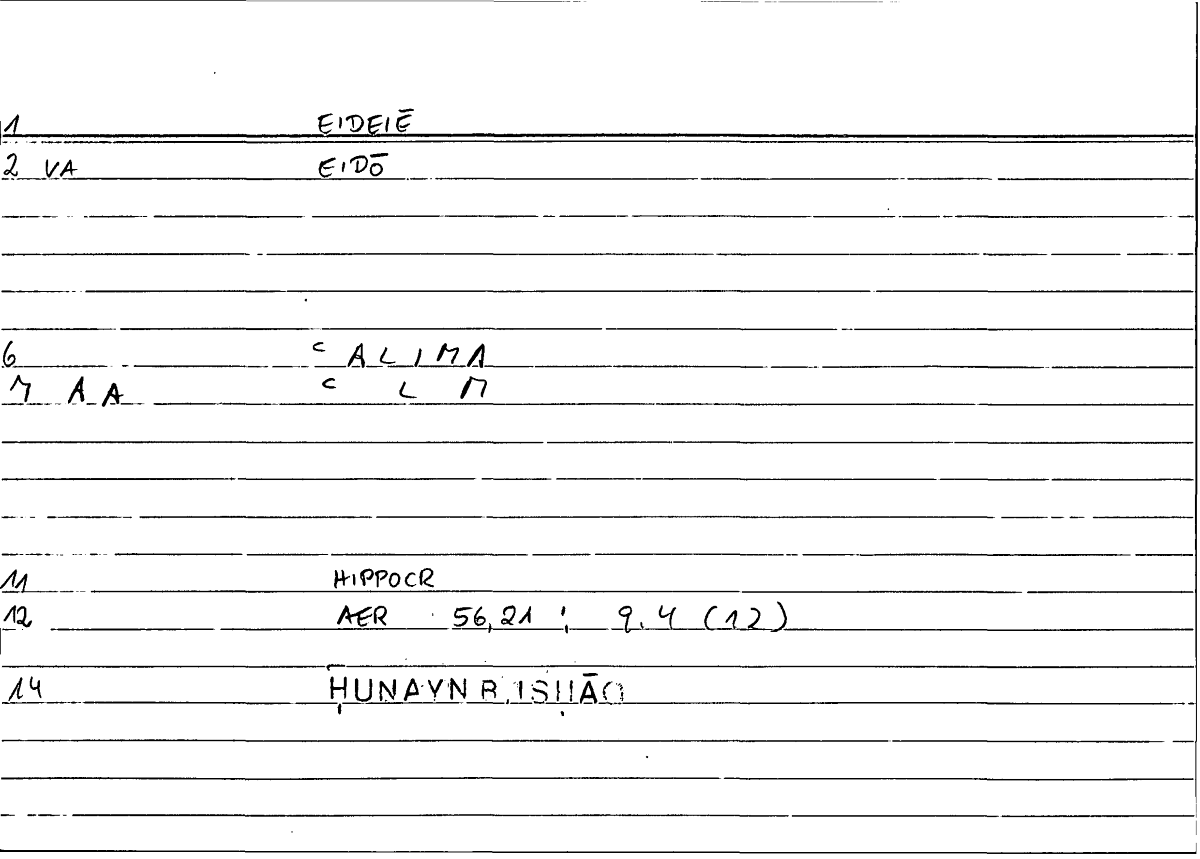 1 EIDEIĒ
2 VA EIDŌ
6 ʿALIMA
7 AA ʿ L M
11 HIPPOCR
12 AER 56,21 ; 9.4 (12)
14 ḤUNAYN B. ISḤĀQ